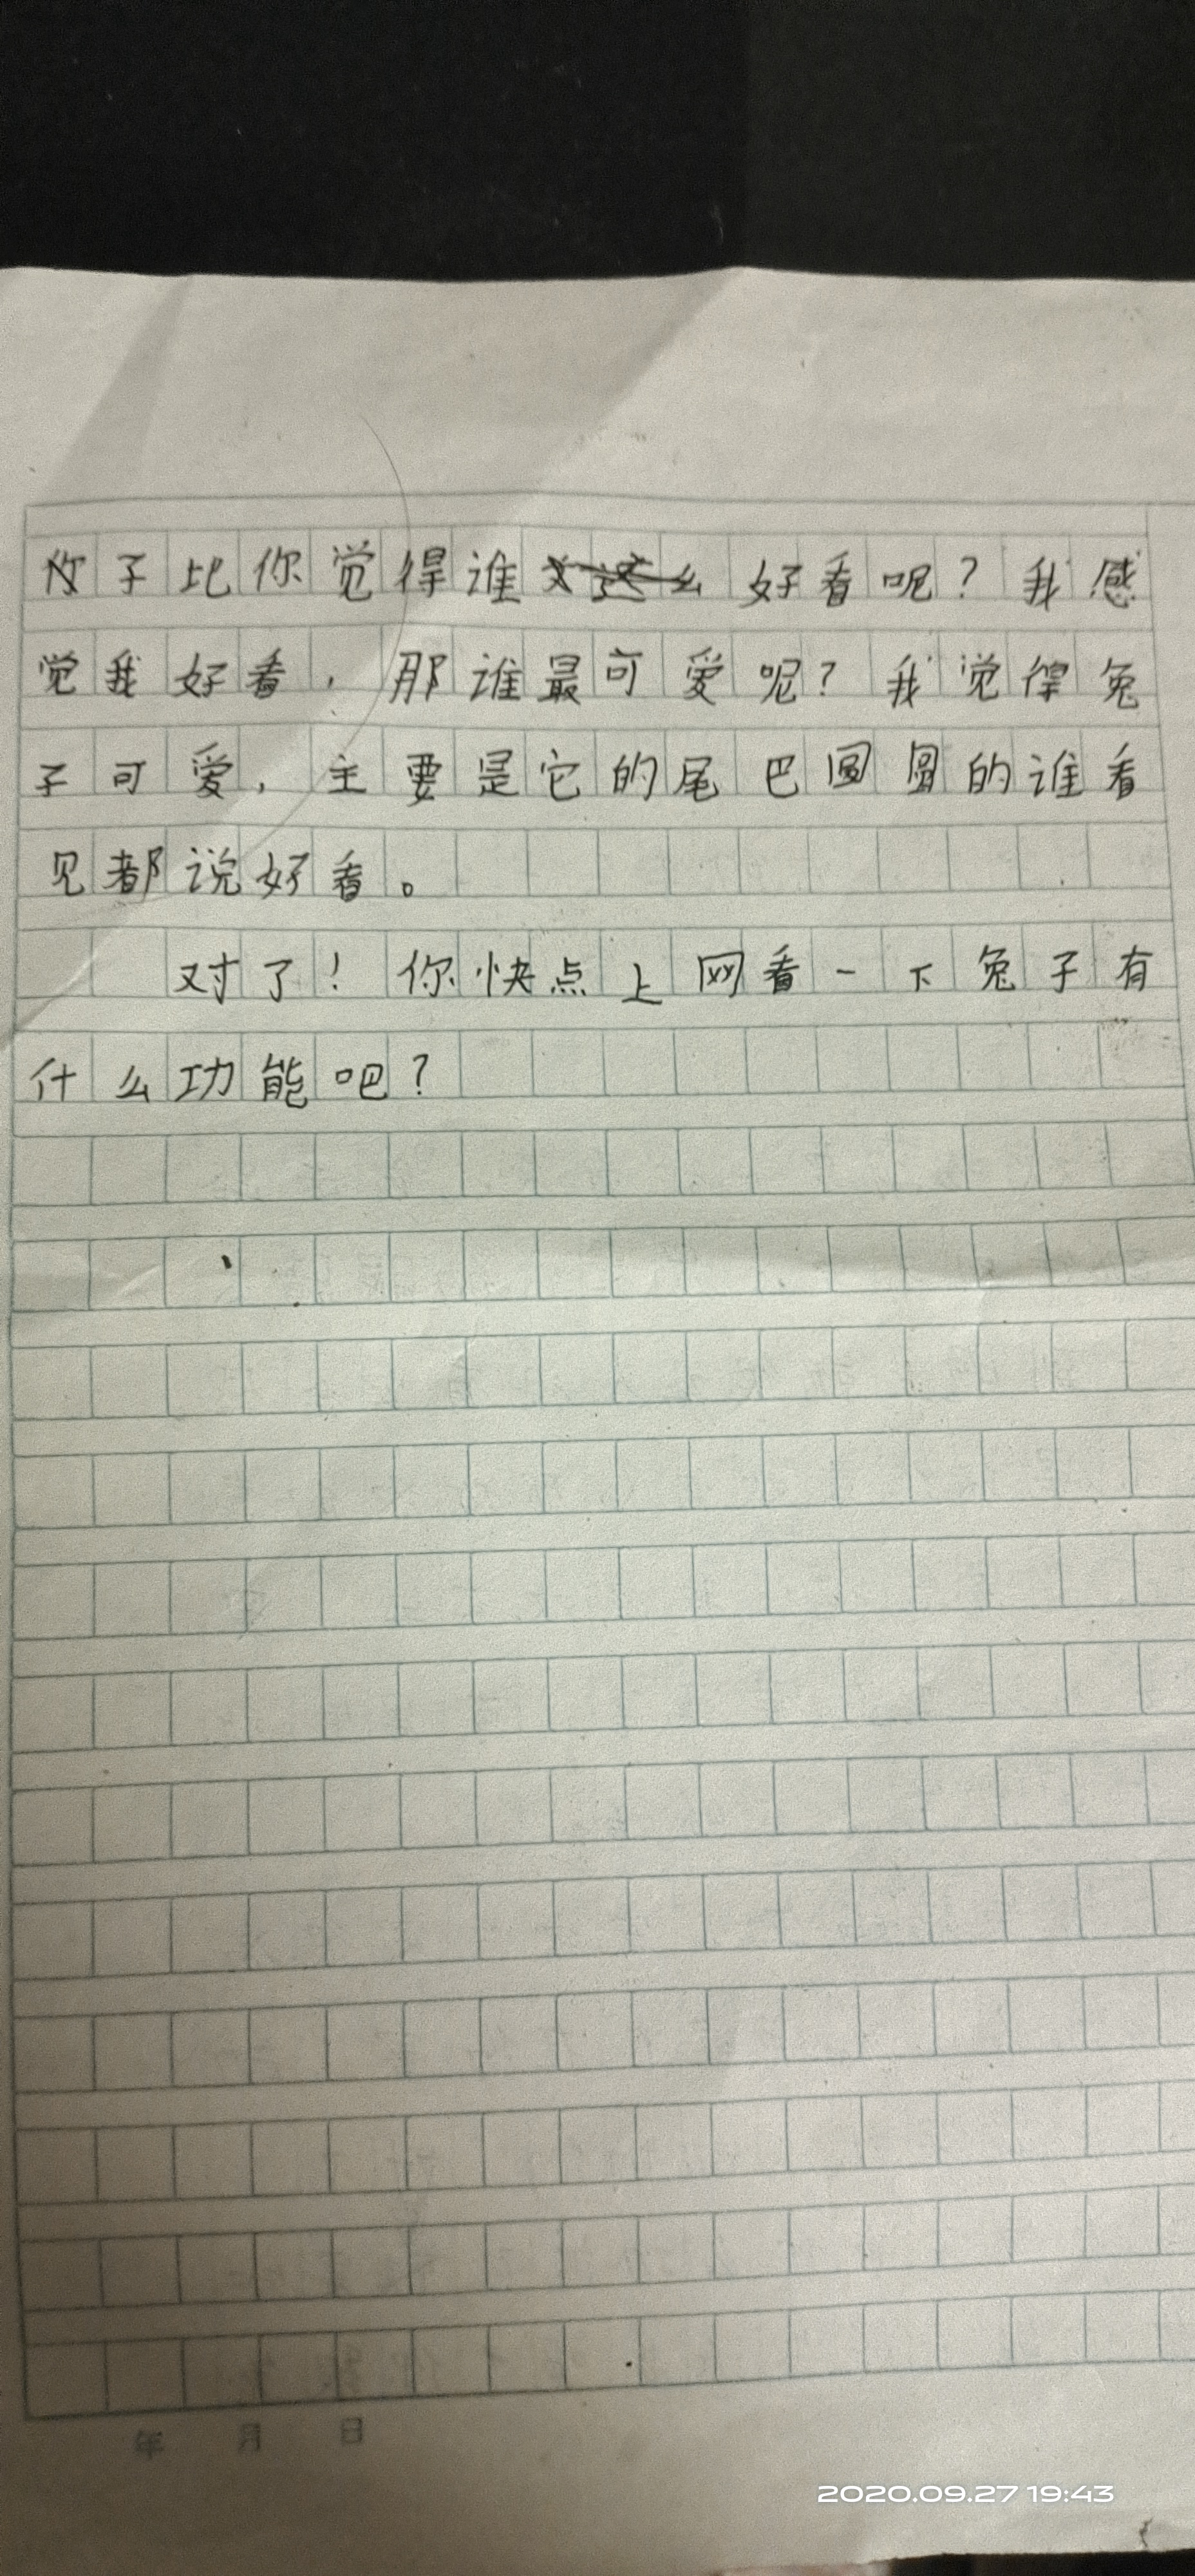 子比你觉得谁好看呢？我感
觉我好看，那谁最可爱呢？我觉得兔
子可爱，主要是它的尾巴圆圆的谁看
见都说好看。
对了！你快点上网看一下兔子有
什么功能吧？
年 月 日
2020.09.27 19:43